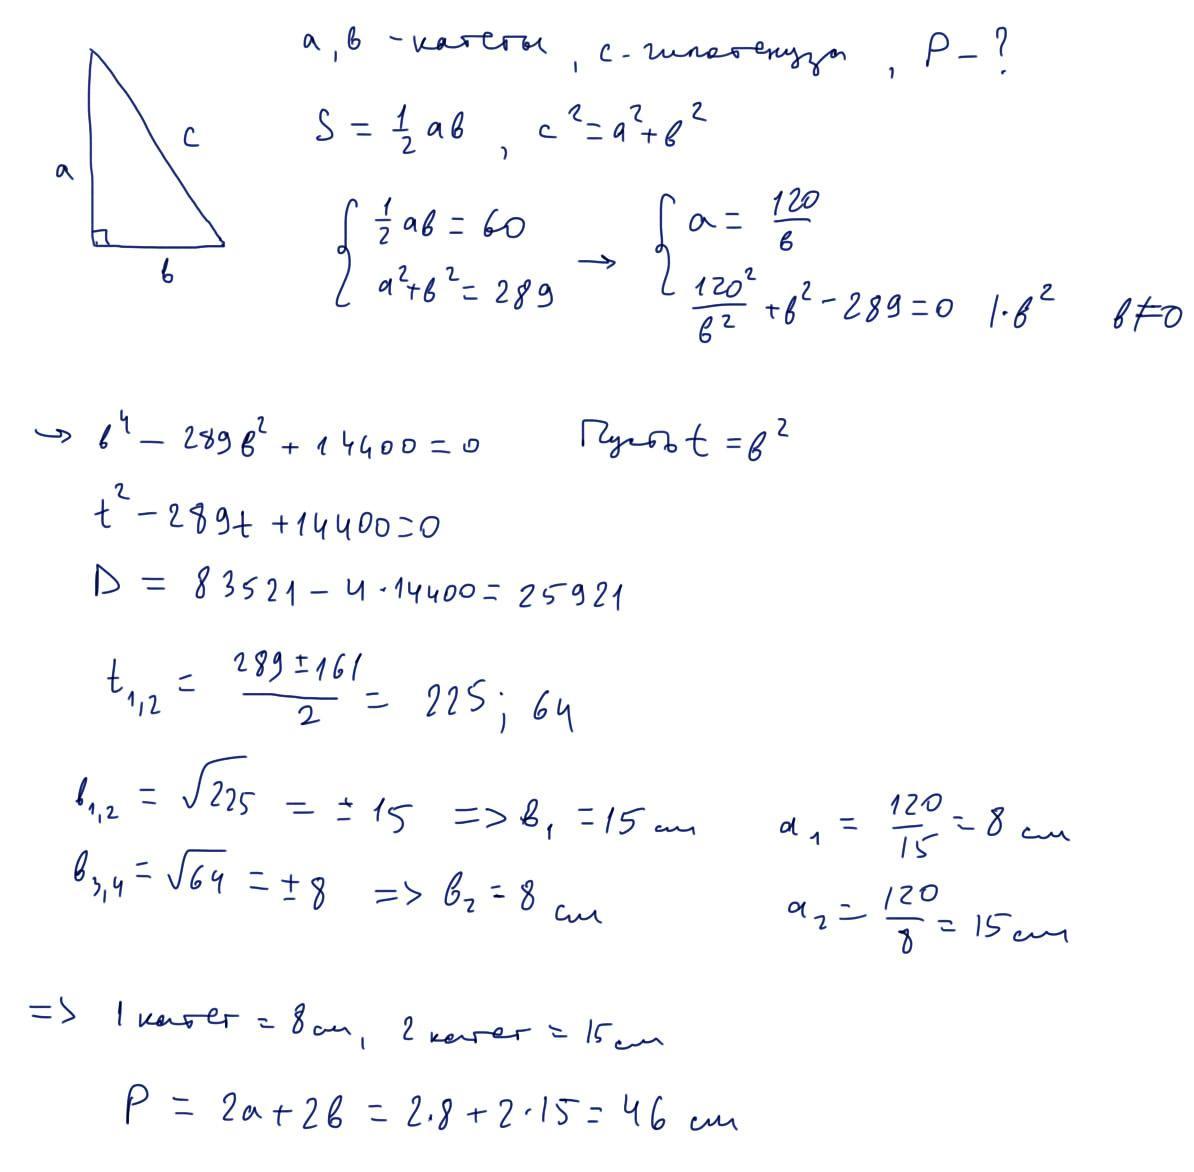 a, b - катеты, c - гипотенуза, P - ?
S = 1/2 ab, c² = a² + b²
a
c
b
{ 1/2 ab = 60 → { a = 120/b
a² + b² = 289 120²/b² + b² - 289 = 0 | · b² b ≠ 0
→ b⁴ - 289b² + 14400 = 0 Пусть t = b²
t² - 289t + 14400 = 0
D = 83521 - 4 · 14400 = 25921
t₁,₂ = (289 ± 161)/2 = 225; 64
b₁,₂ = √225 = ± 15 => b₁ = 15 см a₁ = 120/15 = 8 см
b₃,₄ = √64 = ± 8 => b₂ = 8 см a₂ = 120/8 = 15 см
=> 1 катет = 8 см, 2 катет = 15 см
P = 2a + 2b = 2·8 + 2·15 = 46 см